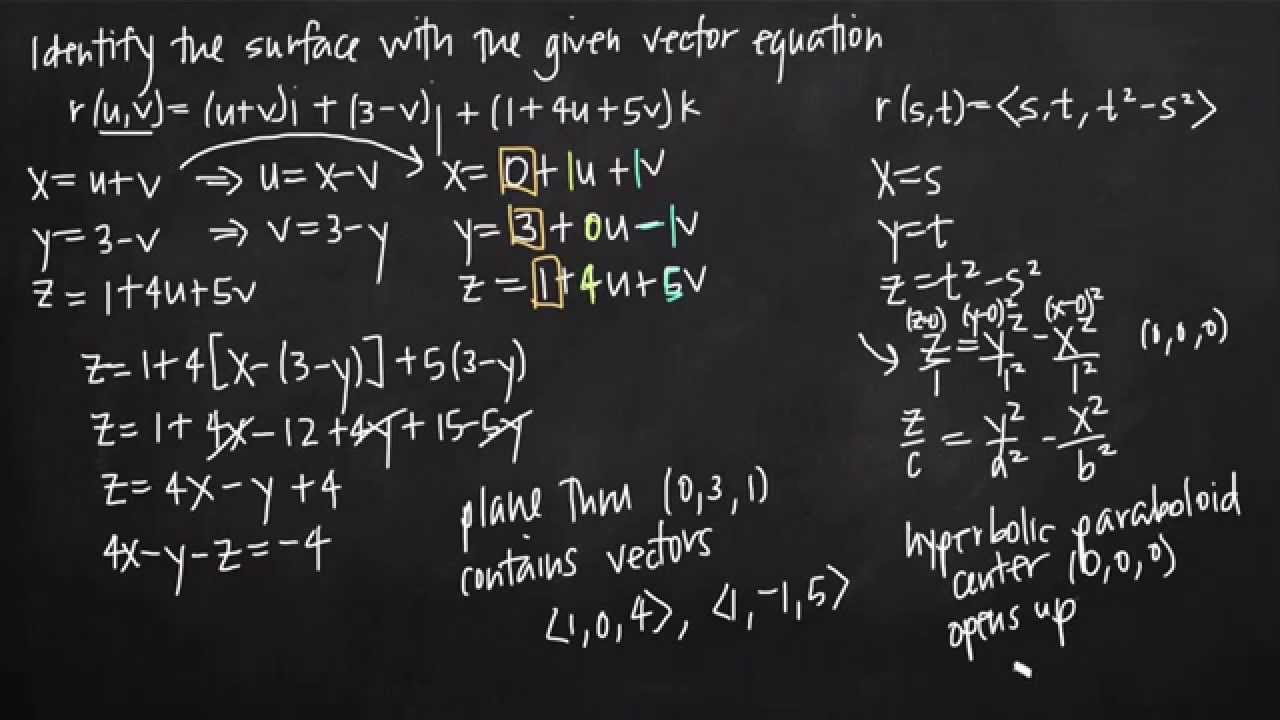 Identify the surface with the given vector equation
r(u,v)=(u+v)i+(3-v)j+(1+4u+5v)k
x=u+v ⇒ u=x-v
y=3-v ⇒ v=3-y
z=1+4u+5v
x=0+1u+1v
y=3+0u-1v
z=1+4u+5v
z=1+4[x-(3-y)]+5(3-y)
z=1+4x-12+4y+15-5y
z=4x-y+4
4x-y-z=-4
plane thru (0,3,1)
contains vectors
⟨1,0,4⟩, ⟨1,-1,5⟩
r(s,t)=⟨s,t,t²-s²⟩
x=s
y=t
z=t²-s²
(z-0) (y-0)² (x-0)²
z/1=y²/1²-x²/1² (0,0,0)
z/c=y²/a²-x²/b²
hyperbolic paraboloid
center (0,0,0)
opens up